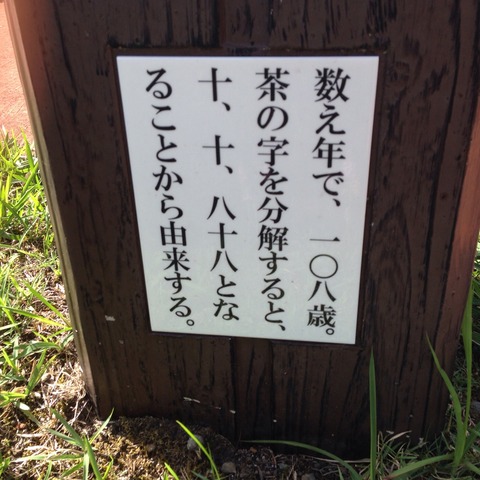 数え年で、一〇八歳。
茶の字を分解すると、
十、十、八十八とな
ることから由来する。